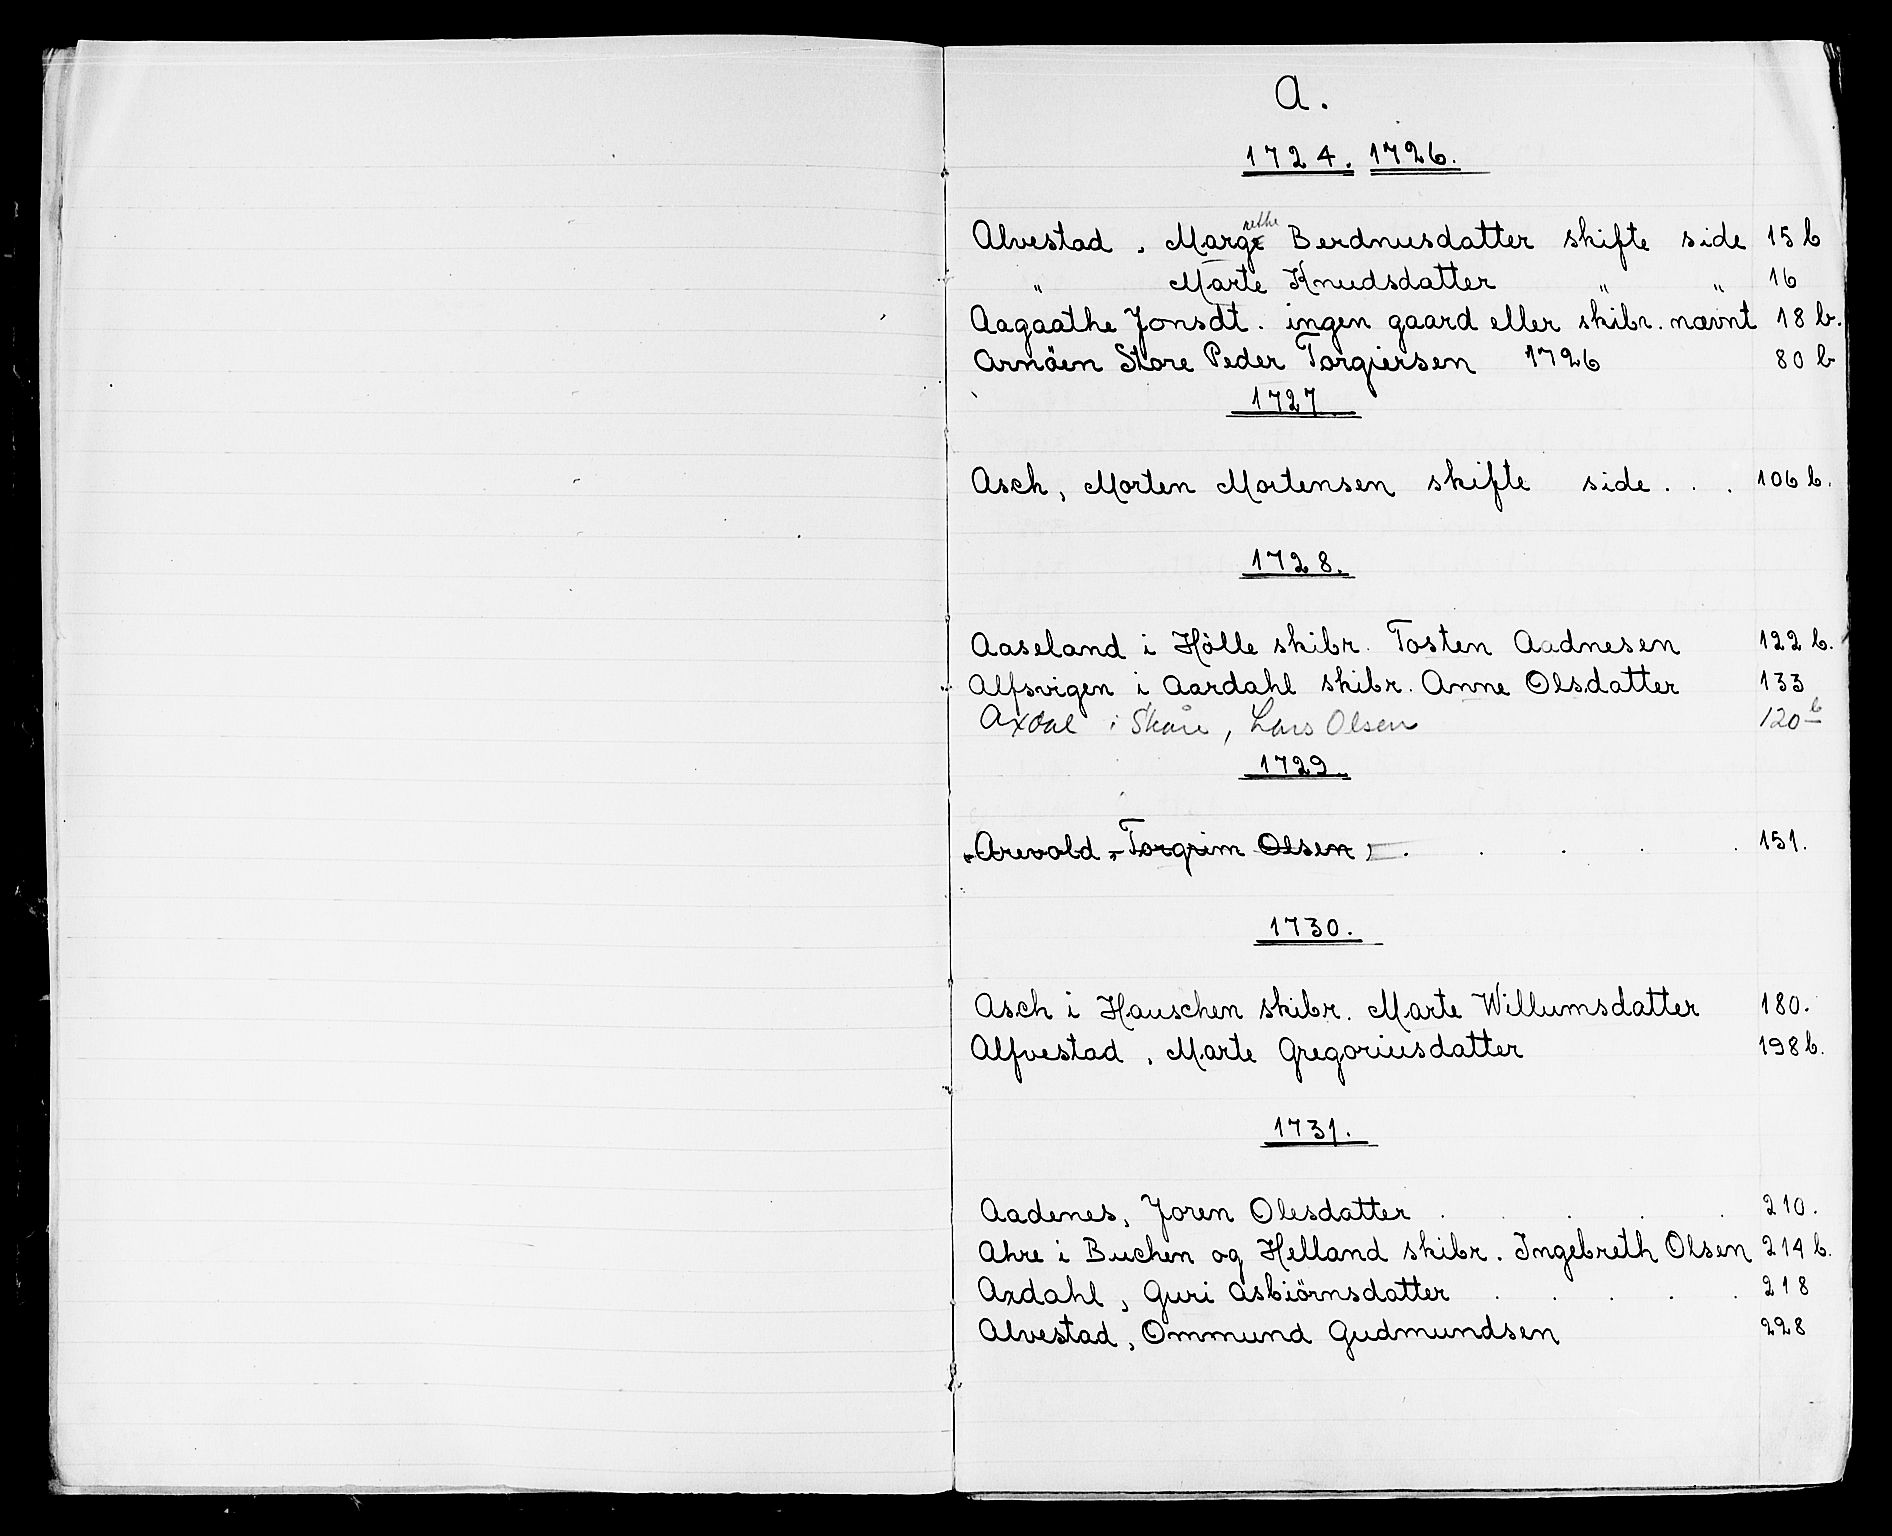 A.
1724. 1726.
Alvestad, Margrethe Berdnusdatter skifte side 15 b
" Marte Knudsdatter " " 16
Aagaathe Jonsdt. ingen gaard eller skibr. nævnt 18 b.
Arnöen Store Peder Torgiersen 1726 80 b
1727
Asch, Morten Mortensen skifte side . . . 106 b.
1728.
Aaseland i Hölle skibr. Tosten Aadnesen 122 b.
Alfsvigen i Aardahl skibr. Anne Olsdatter 133
Axdal i Skåre, Lars Olsen 120 b
1729.
Arevold, Torgrim Olsen . . . . . 151.
1730.
Asch i Hauschen skibr. Marte Willumsdatter 180.
Alfvestad, Marte Gregoriusdatter 198 b.
1731.
Aadenes, Joren Olesdatter . . . . . 210.
Ahre i Buchen og Helland skibr. Ingebreth Olsen 214 b.
Axdahl, Guri Asbiörnsdatter . . . . . 218
Alvestad, Ommund Gudmundsen 228